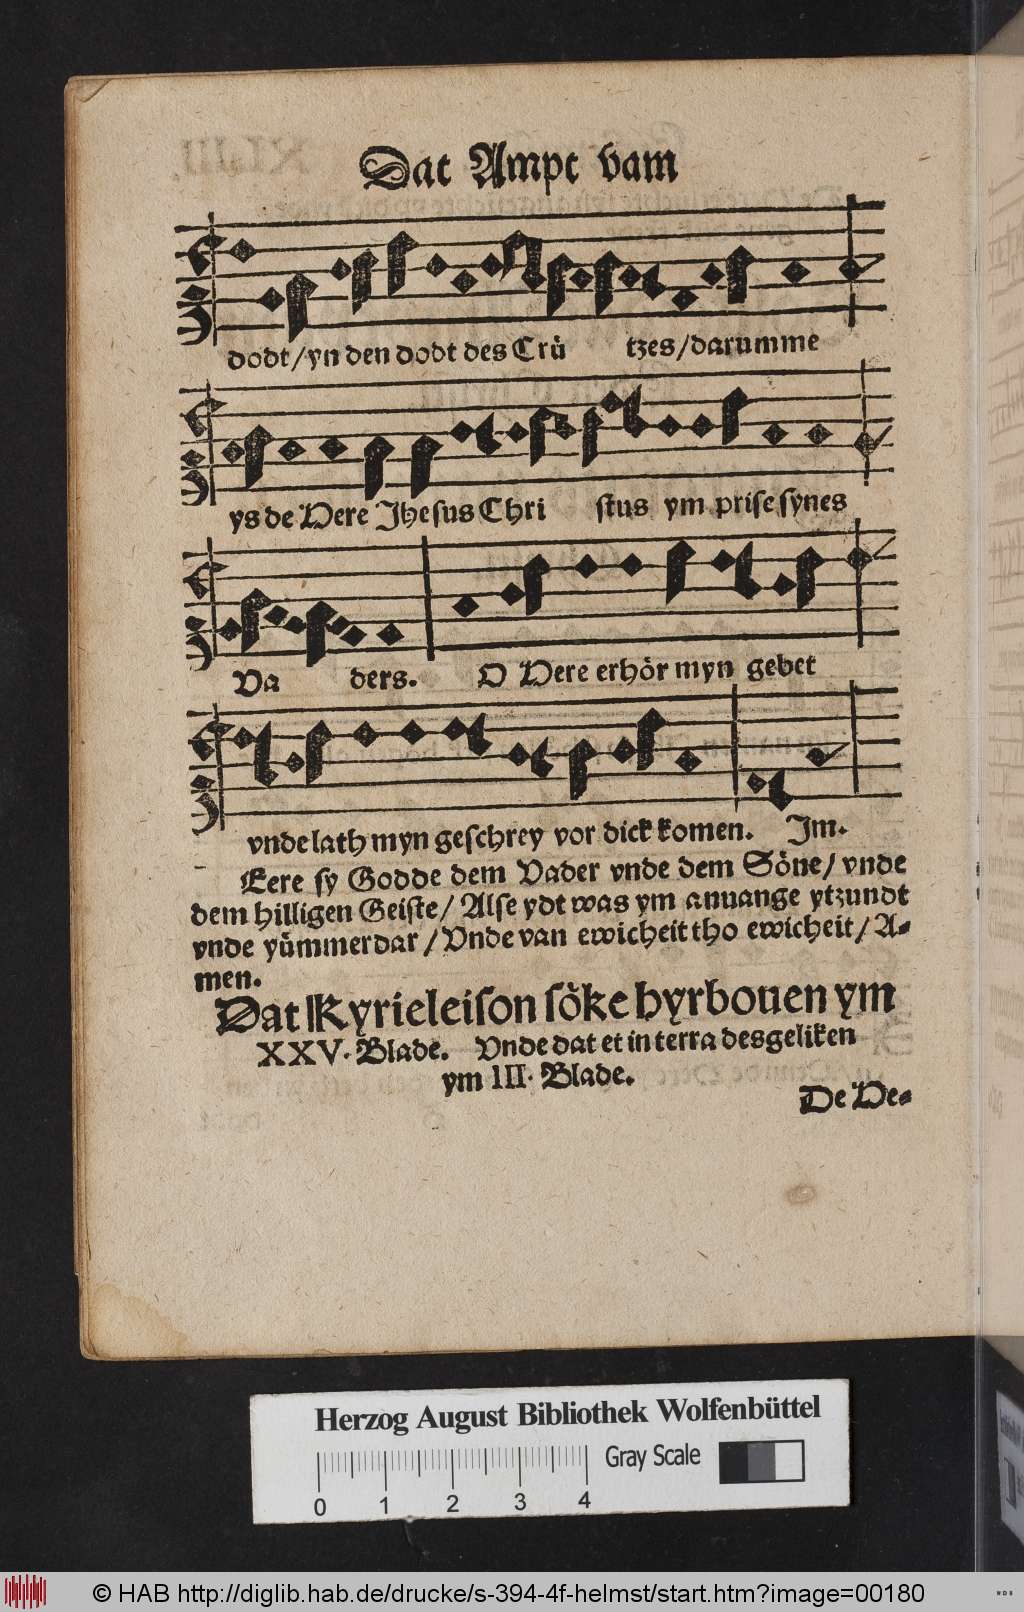 Dat Ampt vam
dodt / yn den dodt des Crü tzes / darumme
ys de Here Jhesus Chri stus ym prise synes
Va ders. O Here erhör myn gebet
vnde lath myn geschrey vor dick komen. Jm.
Eere sy Godde dem Vader vnde dem Söne / vnde
dem hilligen Geiste / Alse ydt was ym anuange ytzundt
vnde yümmerdar / Vnde van ewicheit tho ewicheit / A-
men.
Dat Kyrieleison söke hyrbouen ym
XXV. Blade. Vnde dat et in terra desgeliken
ym III. Blade.
De He-
Herzog August Bibliothek Wolfenbüttel
Gray Scale
0 1 2 3 4
© HAB http://diglib.hab.de/drucke/s-394-4f-helmst/start.htm?image=00180